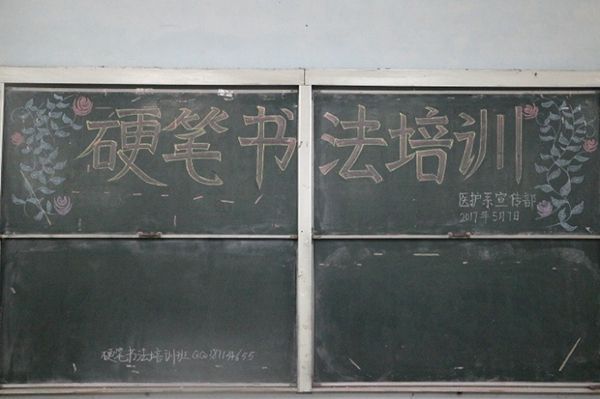 硬笔书法培训
医护系宣传部
2017年5月7日
硬笔书法培训班